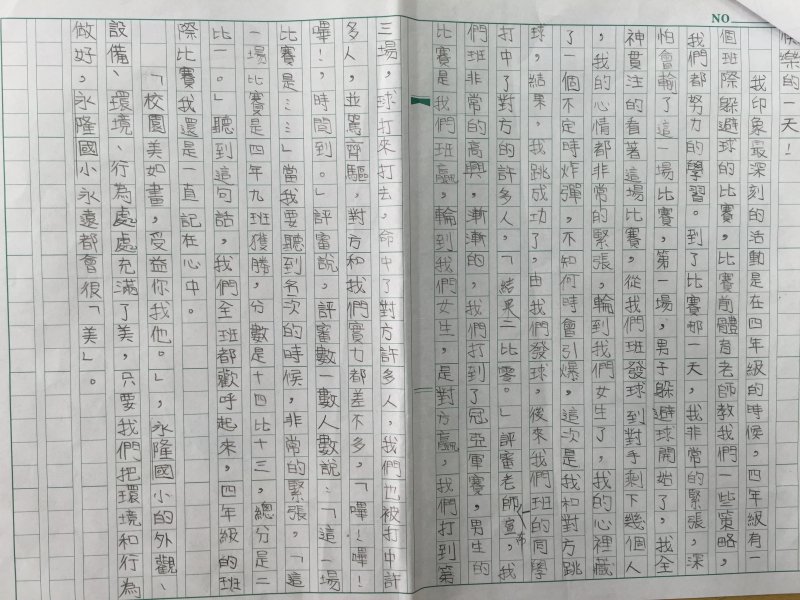 NO
快樂的一天！
我印象最深刻的活動是在四年級的時候，四年級有一
個班際躲避球的比賽，比賽前體育老師教我們一些策略，
我們都努力的學習。到了比賽那一天，我非常的緊張，深
怕會輸了這一場比賽，第一場，男子躲避球開始了，我全
神貫注的看著這場比賽，從我們班發球到對手剩下幾個人
，我的心情都非常的緊張，輪到我們女生了，我的心裡藏
了一個不定時炸彈，不知何時會引爆，這次是我和對方跳
球，結果，我跳成功了，由我們發球，後來我們班的同學
打中了對方的許多人，「結果二比零。」評審老師宣布，我
們班非常的高興，漸漸的，我們打到了冠亞軍賽，男生的
比賽是我們班贏，輪到我們女生，是對方贏，我們打到第
三場，球打來打去，命中了對方許多人，我們也被打中許
多人，並駕齊驅，對方和我們實力都差不多，「嗶！嗶！
嗶！，時間到。」評審說，評審數一數人數說：「這一場
比賽是……」當我要聽到名次的時候，非常的緊張，「這
一場比賽是四年九班獲勝，分數是十四比十三，總分是二
比一。」聽到這句話，我們全班都歡呼起來，四年級的班
際比賽我還是一直記在心中。
「校園美如畫，受益你我他。」，永隆國小的外觀、
設備、環境、行為處處充滿了美，只要我們把環境和行為
做好，永隆國小永遠都會很「美」。